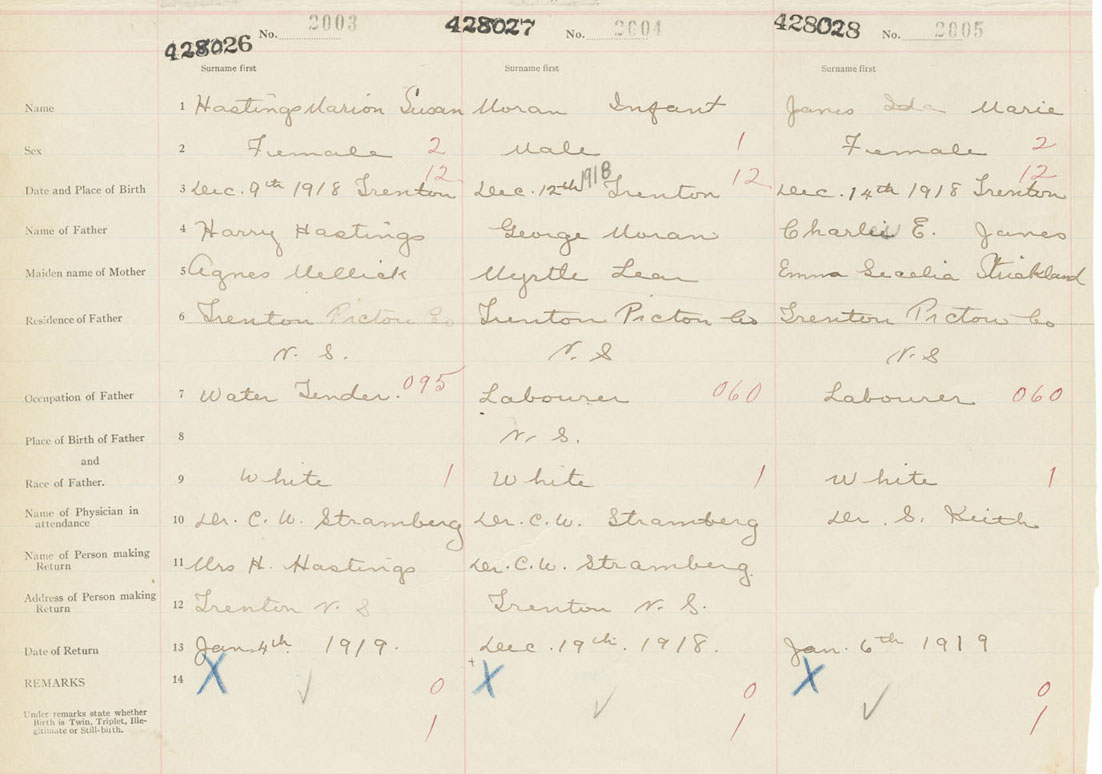 428026 No. 2003 428027 No. 2004 428028 No. 2005
Surname first Surname first Surname first
Name 1 Hastings Marion Susan Moran Infant Janes Ida Marie
Sex 2 Female 2 Male 1 Female 2
Date and Place of Birth 3 Dec. 9th 1918 Trenton 12 Dec. 12th 1918 Trenton 12 Dec. 14th 1918 Trenton 12
Name of Father 4 Harry Hastings George Moran Charlie E. Janes
Maiden name of Mother 5 Agnes Mellick Myrtle Lean Emma Secelia Strickland
Residence of Father 6 Trenton Pictou Co Trenton Pictou Co Trenton Pictou Co
N. S. N. S N. S
Occupation of Father 7 Water Tender. 095 Labourer 060 Labourer 060
Place of Birth of Father 8 N. S.
and
Race of Father. 9 White 1 White 1 White 1
Name of Physician in
attendance 10 Dr. C. W. Stramberg Dr. C. W. Stramberg Dr. S. Keith
Name of Person making
Return 11 Mrs H. Hastings Dr. C. W. Stramberg.
Address of Person making
Return 12 Trenton N. S Trenton N. S.
Date of Return 13 Jan. 4th. 1919. Dec. 19th. 1918. Jan. 6th 1919
REMARKS 14 X ✓ 0 X ✓ 0 X ✓ 0
Under remarks state whether
Birth is Twin, Triplet, Ille-
gitimate or Still-birth. 1 1 1